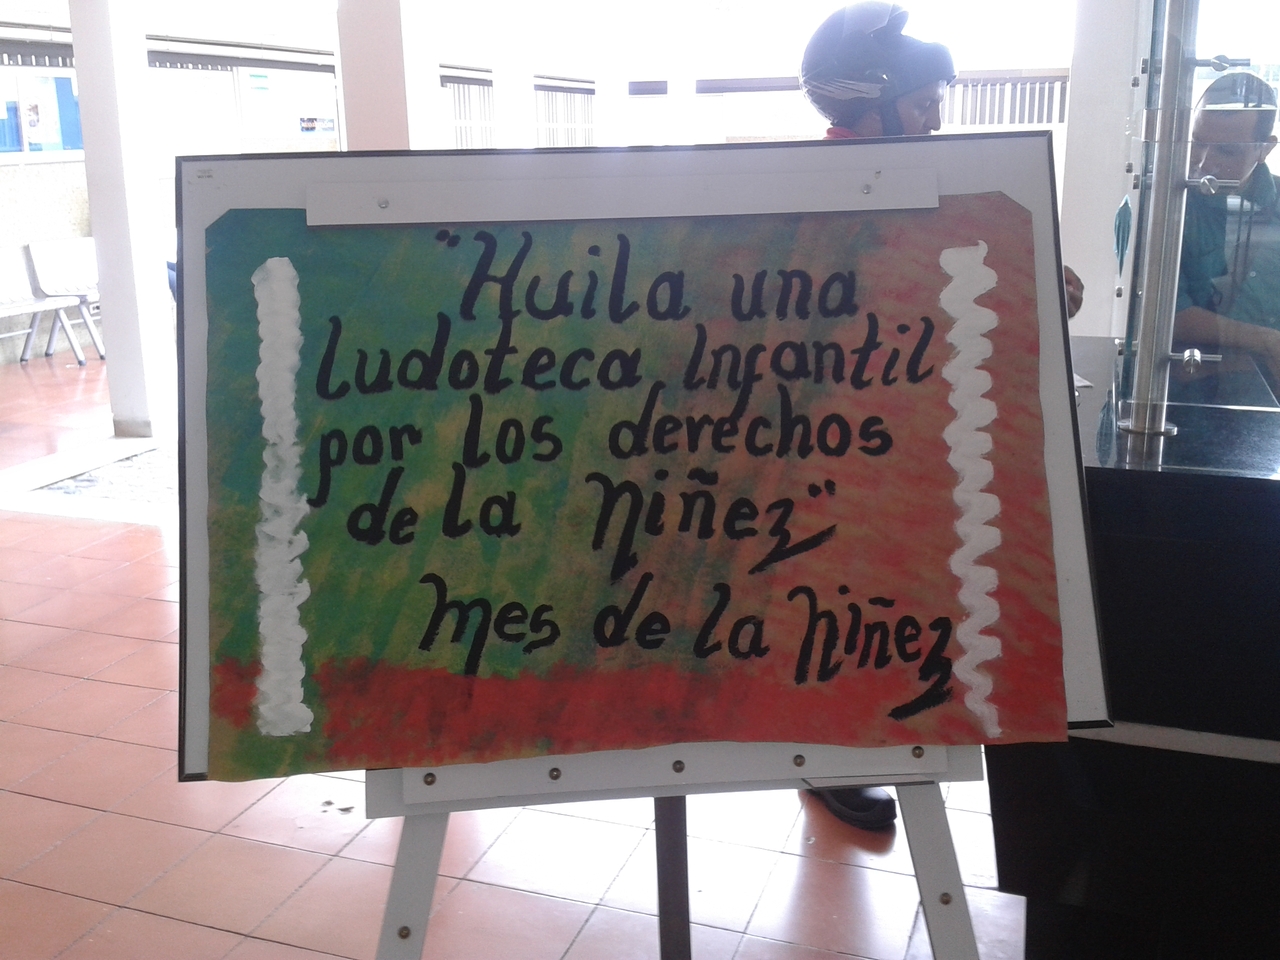 "Huila una
ludoteca Infantil
por los derechos
de la niñez"
mes de la niñez